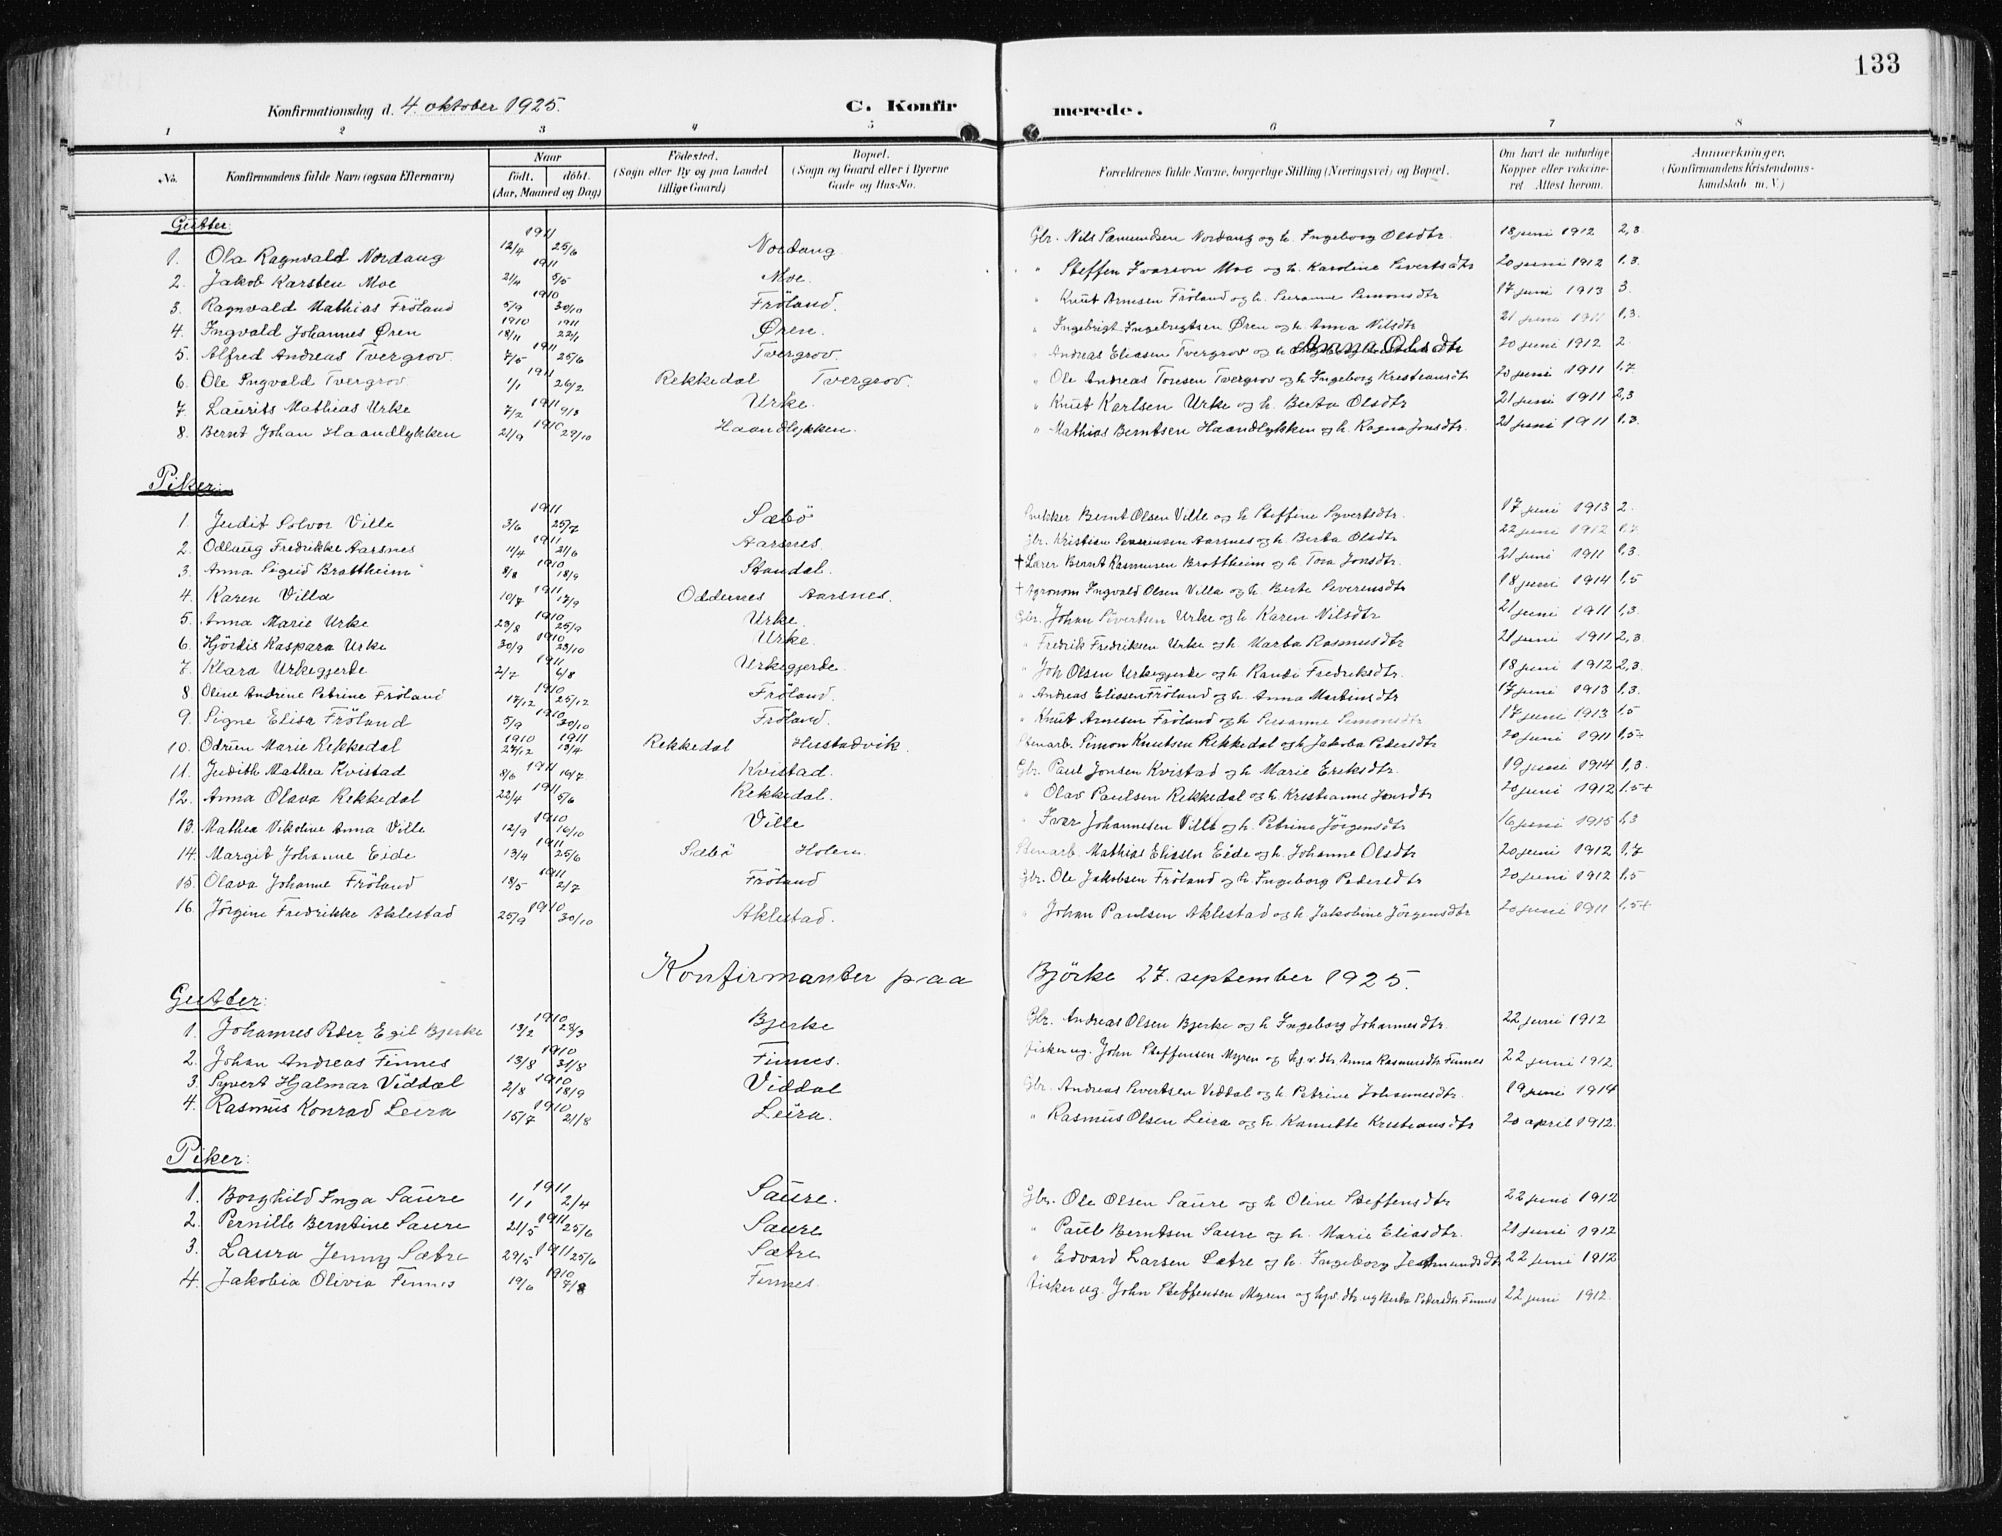 133
Konfirmationsdag d. 4. oktober 1925. C. Konfirmerede.
1 2 3 4 5 6 7 8
No. Konfirmandens fulde Navn (ogsaa Efternavn) Naar født. døbt. (Aar, Maaned og Dag) Fødested. (Sogn eller By og paa Landet tillige Gaard) Bopæl. (Sogn og Gaard eller i Byerne Gade og Hus-No. Forældrenes fulde Navne, borgerlige Stilling (Næringsvei) og Bopæl. Om havt de naturlige Kopper eller vakcineret Attest herom. Anmerkninger. (Konfirmandens Kristendomskundskab m. V.)
Gutter:
1. Ola Ragnvald Nordang 1911 12/4 25/6 Nordang Gbr. Nils Sæmundsen Nordang og h. Ingeborg Olsdtr. 18 juni 1912 2,3
2. Jakob Karsten Moe 1911 21/4 5/5 Moe. " Steffen Ivarson Moe og h. Karoline Sivertsdtr 20 juni 1912 1,3.
3. Ragnvald Mathias Fröland 1910 5/9 30/10 Fröland. " Knut Arnesen Fröland og h. Susanne Simonsdtr 17 juni 1913 3.
4. Ingvald Johannes Øren 1910 1911 18/11 22/1 Øren. " Ingebrigt Ingebrigtsen Øren og h. Anna Nilsdtr 21 juni 1911 1,3.
5. Alfred Andreas Tvergrov. 1911 7/5 25/6 Tvergrov. " Andreas Eliasen Tvergrov og h. Anna Olsdtr 20 juni 1912 2
6. Ole Ingvald Tvergrov 1911 1/1 26/2 Rekkedal Tvergrov. " Ole Andreas Toresen Tvergrov og h Ingeborg Kristiansdtr 20 juni 1911 1,7
7. Laurits Mathias Urke 1911 7/2 9/3 Urke. " Knut Karlsen Urke og h. Berta Olsdtr 21 juni 1911 2,3
8. Bernt Johan Haandlykken 1910 21/9 29/10 Haandlykken. " Mathias Berntsen Haandlykken og h. Ragna Jonsdtr. 21 juni 1911 1,3.
Piker:
1. Judit Solvor Ville 1911 3/6 25/7 Sæbö Snekker Bernt Olsen Ville og h Steffine Syvertsdtr. 17 juni 1913 2.
2. Odlaug Fredrikke Aarsnes 1911 11/4 21/6 Aarsnes Gbr. Kristian Severinsen Aarsnes og h. Berta Olsdtr. 22 juni 1912 1,7
3. Anna Sigrid Brattheim 1910 8/8 18/9 Standal. + Lærer Bernt Rasmusen Brattheim og h. Tora Jonsdtr. 21 juni 1911 1,3.
4. Karen Villa 1911 10/7 17/9 Oddernes Aarsnes. + Agronom Ingvald Olsen Villa og h. Berte Severinsdtr 18 juni 1914 1,5
5. Anna Marie Urke 1910 23/8 25/9 Urke. Gbr. Johan Sivertsen Urke og h Karen Nilsdtr. 21 juni 1911 1,3.
6. Hjördis Kaspara Urke 1910 30/9 23/10 Urke. " Fredrik Fredriksen Urke og h Marta Rasmusdtr 21 juni 1911 2,3.
7. Klara Urkegjerde 1911 2/7 6/8 Urkegjerde. " Joh Olsen Urkegjerde og h Randi Fredriksdtr. 18 juni 1912 2,3.
8. Oline Andrine Petrine Fröland 1910 17/12 25/12 Fröland. " Andreas Eliasen Fröland og h. Anna Martinsdtr 17 juni 1913 1,3.
9. Signe Elisa Fröland 1910 5/9 30/10 Fröland. " Knut Arnesen Fröland og h Susanne Simonsdtr 17 juni 1913 1,5
10. Odrun Marie Rekkedal 1910 1911 27/12 13/4 Rekkedal Hustadvik. Stenarb. Simon Knutsen Rekkedal og h. Jakoba Pedersdtr 20 juni 1911 1,5+
11. Judith Mathea Kvistad 1911 8/6 16/7 Kvistad. Gbr. Paul Jonsen Kvistad og h Marie Eriksdtr. 19 juni 1914 1,3.
12. Anna Olava Rekkedal 1911 22/4 5/6 Rekkedal. " Olav Paulsen Rekkedal og h. Kristianne Jensdtr 20 juni 1912 1,5+
13. Mathea Nikoline Anna Ville 1910 12/9 16/10 Ville " Iver Johannesen Ville og h. Petrine Jörgensdtr 16 juni 1915 1,3
14. Margit Johanne Eide 1911 13/4 25/6 Sæbö Holen. Stenarb. Mathias Eliasen Eide og h. Johanne Olsdtr 20 juni 1912 1,7
15. Olava Johanne Fröland 1911 18/5 2/7 Fröland Gbr. Ole Jakobsen Fröland og h Ingeborg Pedersdtr 20 juni 1912 1,5
16. Jörgine Fredrikke Aklestad 1910 25/9 30/10 Aklestad. " Johan Paulsen Aklestad og h Jakobine Jörgensdtr 20 juni 1911 1,5+
Konfirmanter paa Björke 27. september 1925.
Gutter:
1. Johannes Peder Egil Bjerke 1910 13/2 28/3 Bjerke Gbr. Andreas Olsen Bjerke og h Ingeborg Johannesdtr. 22 juni 1912
2. Johan Andreas Finnes 1910 13/8 31/8 Finnes. Fisker ug. John Steffensen Myren og hv. dtr Anna Rasmusdtr Finnes 22 juni 1912
3. Syvert Hjalmar Viddal 1910 2/8 18/9 Viddal Gbr. Andreas Sivertsen Viddal og h Petrine Johannesdtr. 19 juni 1914
4. Rasmus Konrad Leira 1910 15/7 21/8 Leira. " Rasmus Olsen Leira og h. Kanutte Kristiansdtr 20 april 1912.
Piker:
1. Borghild Inga Saure 1911 1/1 2/4 Saure. Gbr. Ole Olsen Saure og h Oline Steffensdtr 22 juni 1912
2. Pernille Berntine Saure 1911 21/5 25/6 Saure " Paul Berntsen Saure og h. Marie Eliasdtr. 21 juni 1912
3. Laura Jenny Sætre 1911 29/5 25/6 Sætre " Edvard Larsen Sætre og h. Ingeborg 22 juni 1912
4. Jakobia Olivia Finnes 1910 19/6 7/8 Finnes. Fisker ug. John Steffensen Myren og hv. dtr ug Berta Pedersdtr Finnes 22 juni 1912.